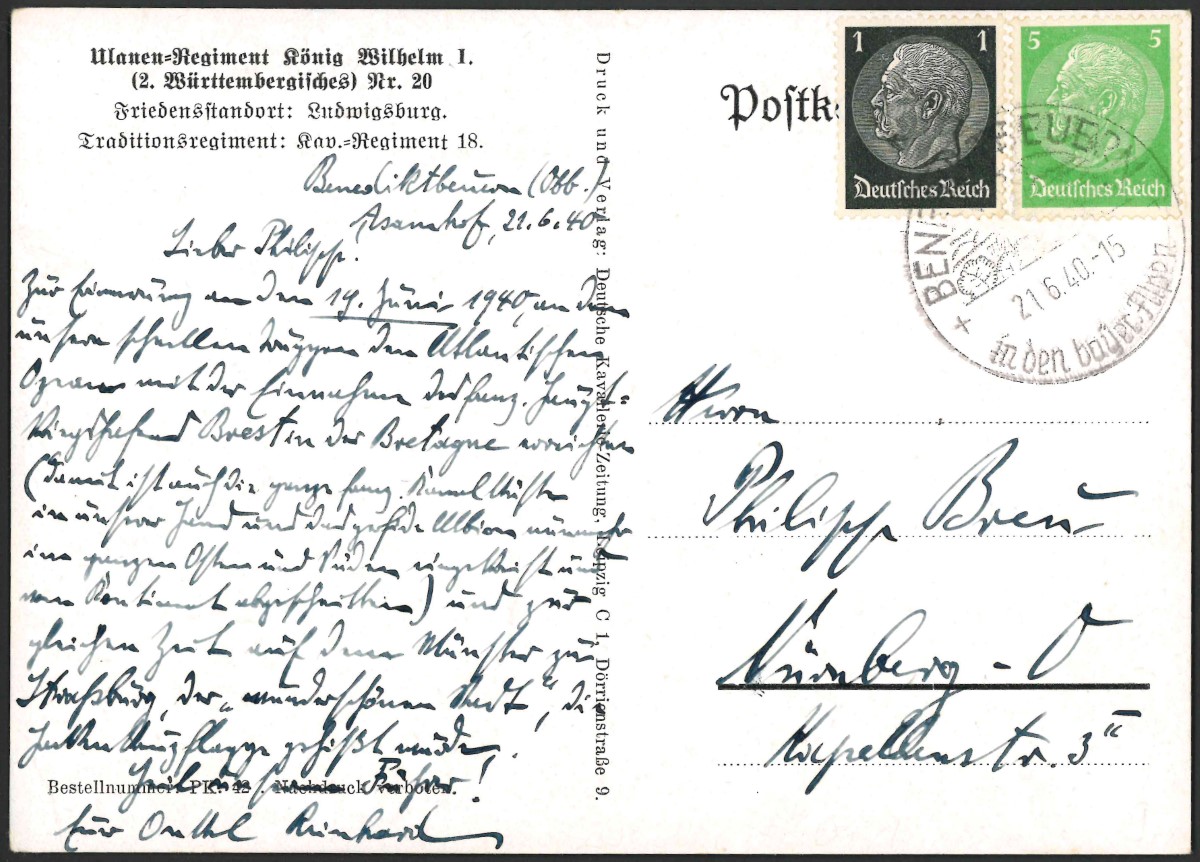 Ulanen=Regiment König Wilhelm I.
(2. Württembergisches) Nr. 20
Friedensstandort: Ludwigsburg.
Traditionsregiment: Kav.=Regiment 18.
Benediktbeuern (Obb.)
Asamhof, 21.6.40
Lieber Philipp.
Zur Erinnerung an den 19. Juni 1940, an dem
unsere schnellen Truppen den Atlantischen
Ozean mit der Einnahme des franz. Haupt=
kriegshafens Brest in der Bretagne erreichten
(damit ist auch die ganze franz. Kanalküste
in unserer Hand und das perfide Albion nunmehr
im ganzen Osten und Süden eingekreist und
vom Kontinent abgeschnitten) und zur
gleichen Zeit auf dem Münster zu
Straßburg, der „wunderschönen Stadt", die
Hakenkreuzflagge gehißt wurde.
Heil unserem Führer!
Bestellnummer: PK. 42 . Nachdruck verboten.
Euer Onkel Reinhard
Druck und Verlag: Deutsche Kavallerie-Zeitung, Leipzig C 1, Dörrienstraße 9.
Postk
1 1
Deutsches Reich
5 5
Deutsches Reich
+ BEN BEUER
21.6.40.-15
in den bayer. Alpen
Herrn
Philipp Breu
Nürnberg - O
Kapellenstr. 3"